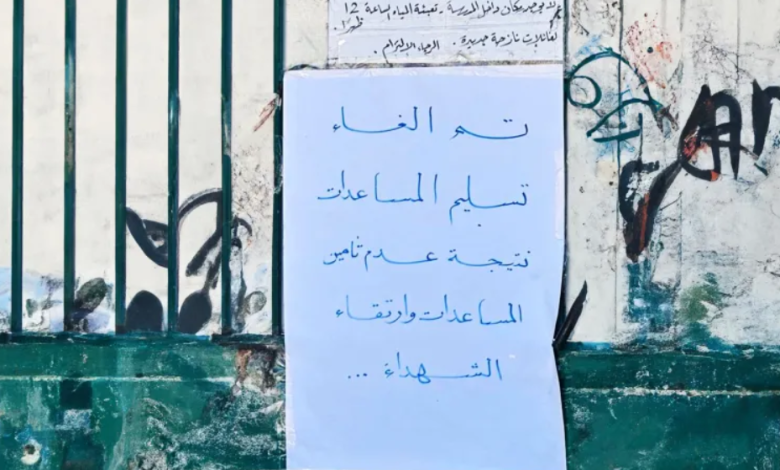 لا يوجد مكان داخل المدرسة . تعبئة المياه الساعة 12 ظهرًا .
لعائلات نازحة جديدة . الرجاء الإلتزام .
تم الغاء
تسليم المساعدات
نتيجة عدم تأمين
المساعدات وارتقاء
الشهداء ...